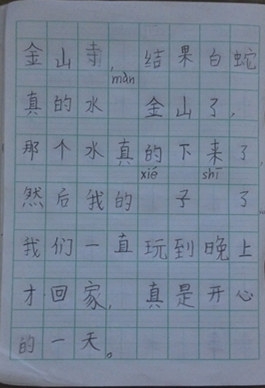 金山寺,结果白蛇
真的水màn金山了,
那个水真的下来了,
然后我的xié子shī了
我们一直玩到晚上
才回家,真是开心
的一天。